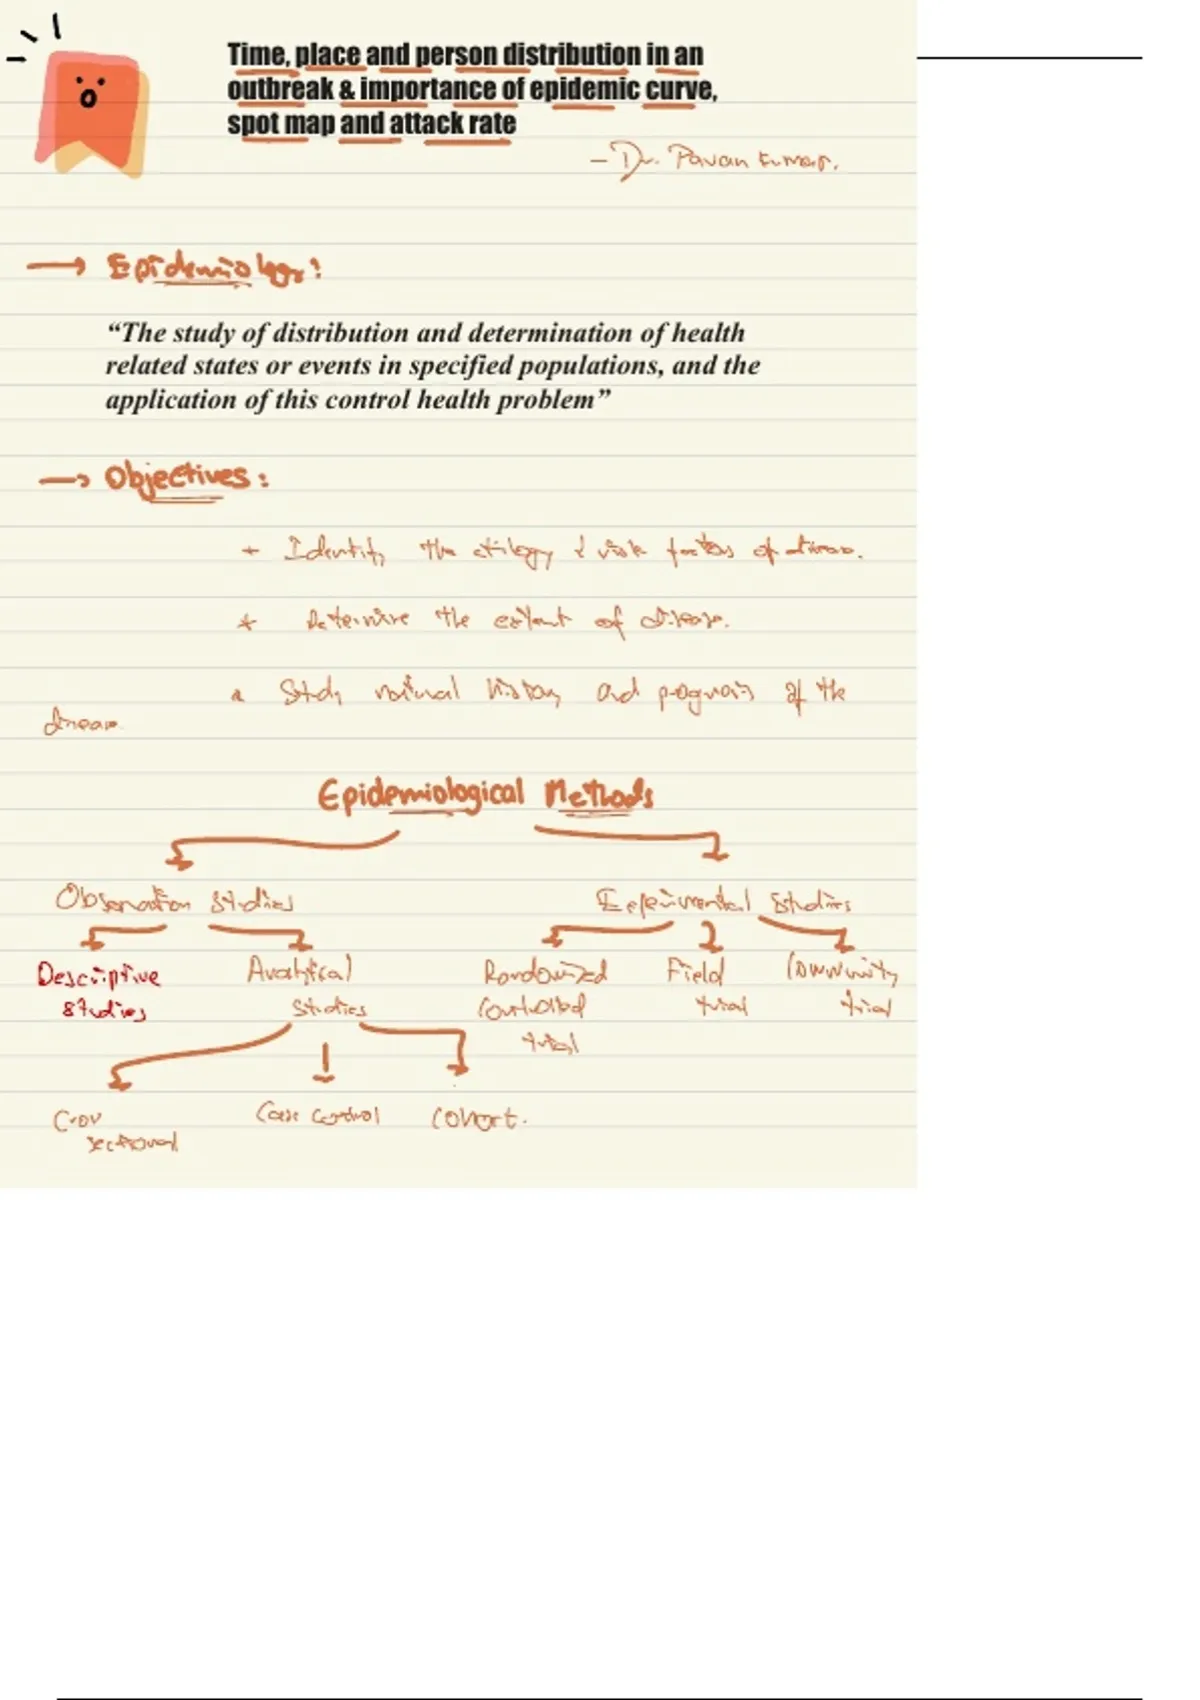 Time, place and person distribution in an
outbreak & importance of epidemic curve,
spot map and attack rate
- Dr. Pavan Kumar.
→ Epidemiology:
“The study of distribution and determination of health
related states or events in specified populations, and the
application of this control health problem”
→ Objectives:
* Identify the etilogy & risk factors of disease.
* Determine the extent of disease.
* Study natural history and prognosis of the
disease.
Epidemiological Methods
Observation studies Experimental studies
Descriptive Analytical Randomized Field Community
studies studies controlled trial trial
trial
Cross Case control Cohort.
sectional